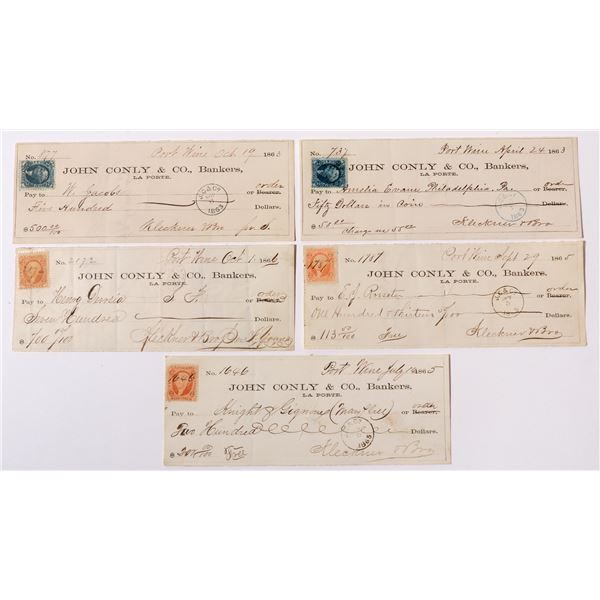 No. 877 Port Wine Oct 19 1863
JOHN CONLY & CO., Bankers,
LA PORTE.
Pay to W. Jacobs or Bearer, order
Five Hundred Dollars.
$500.00/100 Kleckner & Bro
No. 737 Port Wine April 24 1863
JOHN CONLY & CO., Bankers,
LA PORTE.
Pay to Amelia Evans Philadelphia, Pa or Bearer,
Fifty Dollars in Coin Dollars.
$50.00 Kleckner & Bro
Charge me
No. 2172 Port Wine Oct 1 1866
JOHN CONLY & CO., Bankers,
LA PORTE.
Pay to Henry S. F. or Bearer, order
Seven Hundred Dollars.
$700 00/100 Kleckner & Bro
No. 1787 Port Wine Sept 29 1865
1787
JOHN CONLY & CO., Bankers,
LA PORTE.
Pay to E. J. or Bearer, order
One Hundred & Thirteen 50/100 Dollars.
$113 50/100 Kleckner & Bro
No. 1646 Port Wine July 1865
1646
JOHN CONLY & CO., Bankers,
LA PORTE.
Pay to Knight & or Bearer, order
Two Hundred Dollars.
$ Kleckner & Bro